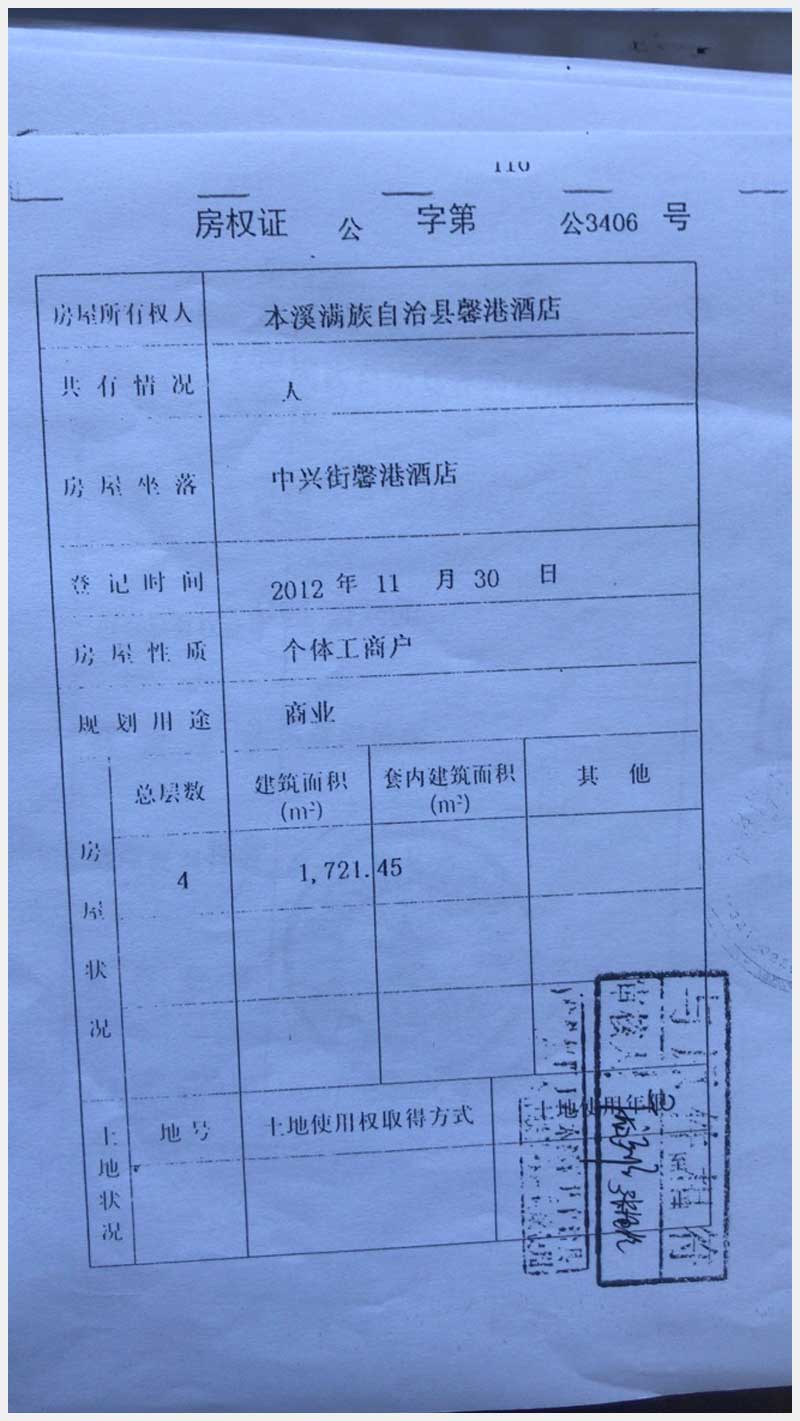 房权证 公 字第 公3406 号
房屋所有权人 本溪满族自治县馨港酒店
共有情况 人
房屋坐落 中兴街馨港酒店
登记时间 2012 年 11 月 30 日
房屋性质 个体工商户
规划用途 商业
房屋状况
总层数 建筑面积(m²) 套内建筑面积(m²) 其他
4 1,721.45
土地状况
地号 土地使用权取得方式 土地使用年限
至
审核人